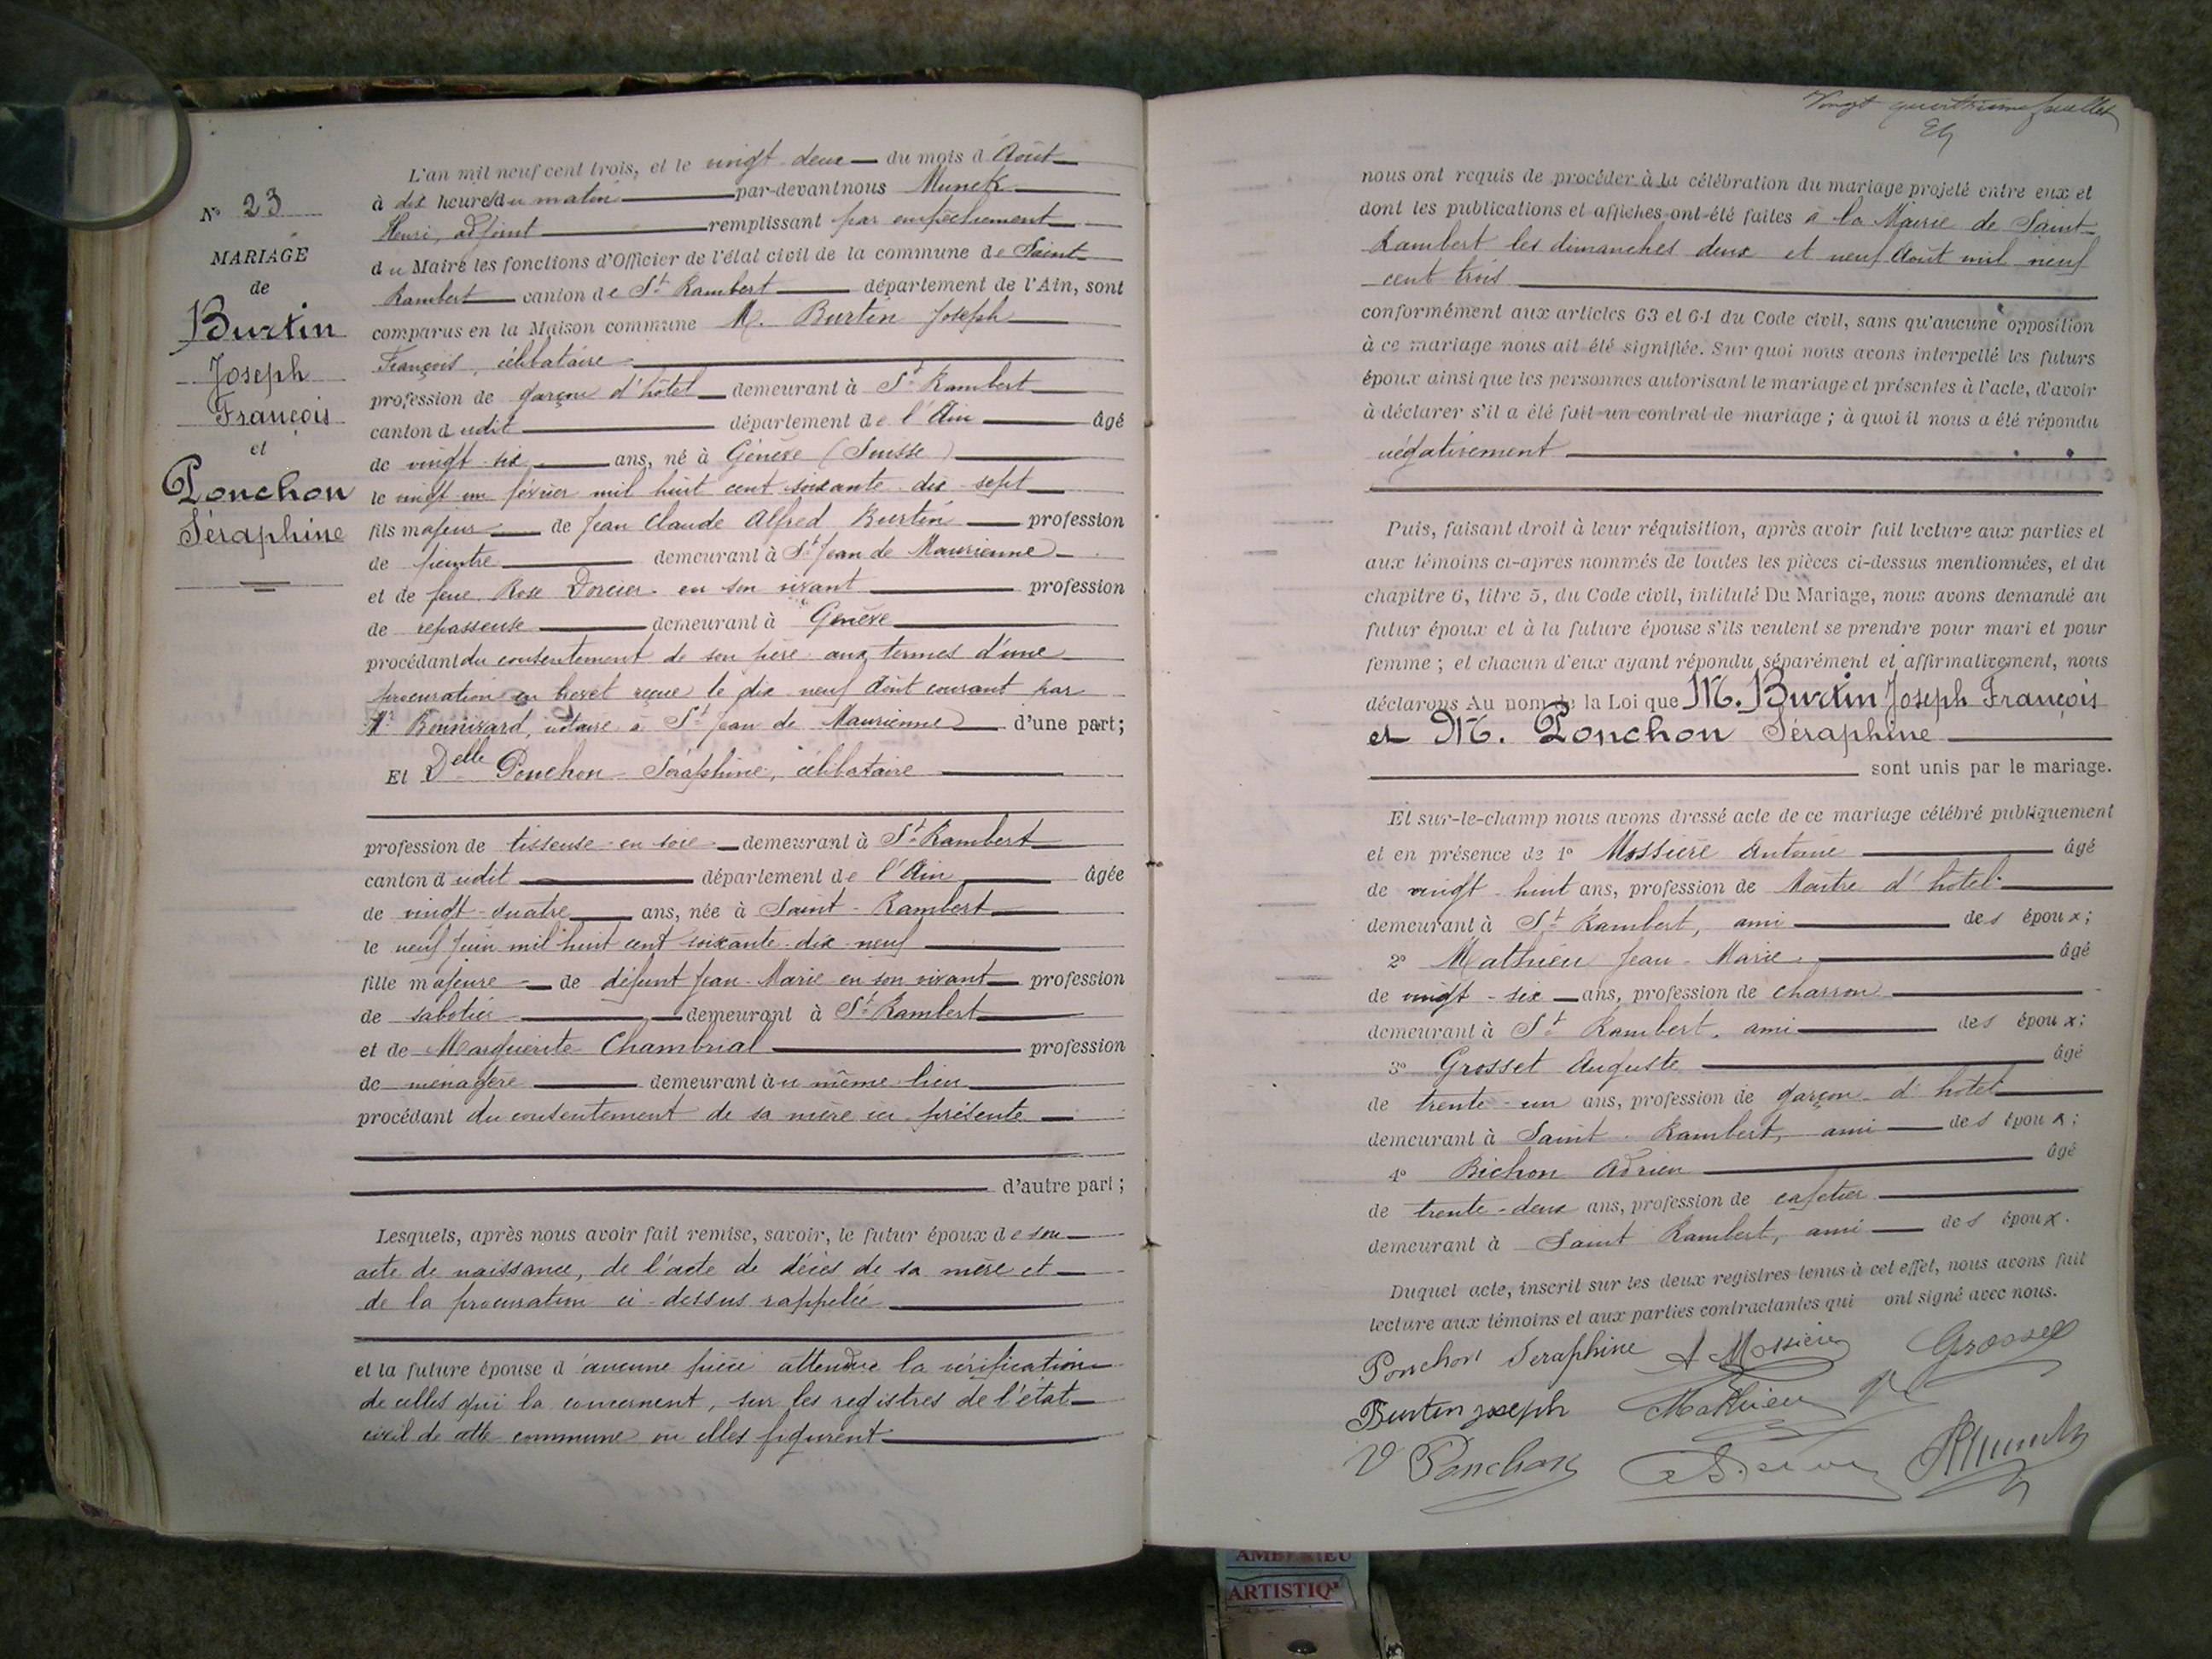 N° 23
MARIAGE
de
Burtin
Joseph
François
et
Ponchon
Séraphine
L'an mil neuf cent trois, et le vingt deux du mois d'Août
à dix heures du matin par-devant nous Munck
Henri, adjoint remplissant par empêchement
du Maire les fonctions d'Officier de l'état civil de la commune de Saint
Rambert canton de St Rambert département de l'Ain, sont
comparus en la Maison commune M. Burtin Joseph
François, célibataire
profession de garçon d'hôtel demeurant à St Rambert
canton dudit département de l'Ain âgé
de vingt-six ans, né à Génève (Suisse)
le vingt un février mil huit cent soixante dix sept
fils majeur de Jean Claude Alfred Burtin profession
de peintre demeurant à St Jean de Maurienne
et de feue Rose Dorcier en son vivant profession
de repasseuse demeurant à Genève
procédant du consentement de son père aux termes d'une
procuration en brevet reçue le dix neuf Août courant par
Me notaire à St Jean de Maurienne d'une part;
Et Delle Ponchon Séraphine, célibataire
profession de tisseuse en soie demeurant à St Rambert
canton dudit département de l'Ain âgée
de vingt-quatre ans, née à Saint-Rambert
le neuf juin mil huit cent soixante-dix-neuf
fille majeure de défunt Jean-Marie en son vivant profession
de sabotier demeurant à St Rambert
et de Marguerite Chambrial profession
de ménagère demeurant au même lieu
procédant du consentement de sa mère ici présente
d'autre part;
Lesquels, après nous avoir fait remise, savoir, le futur époux de son
acte de naissance, de l'acte de décès de sa mère et
de la procuration ci-dessus rappelée
et la future épouse d'aucune pièce attendue la vérification
de celles qui la concernent, sur les registres de l'état
civil de cette commune où elles figurent
Vingt quatrième feuillet
nous ont requis de procéder à la célébration du mariage projeté entre eux et
dont les publications et affiches ont été faites à la Mairie de Saint
Rambert les dimanches deux et neuf Août mil neuf
cent trois
conformément aux articles 63 et 64 du Code civil, sans qu'aucune opposition
à ce mariage nous ait été signifiée. Sur quoi nous avons interpellé les futurs
époux ainsi que les personnes autorisant le mariage et présentes à l'acte, d'avoir
à déclarer s'il a été fait un contrat de mariage; à quoi il nous a été répondu
négativement
Puis, faisant droit à leur réquisition, après avoir fait lecture aux parties et
aux témoins ci-après nommés de toutes les pièces ci-dessus mentionnées, et du
chapitre 6, titre 5, du Code civil, intitulé Du Mariage, nous avons demandé au
futur époux et à la future épouse s'ils veulent se prendre pour mari et pour
femme; et chacun d'eux ayant répondu séparément et affirmativement, nous
déclarons Au nom de la Loi que M. Burtin Joseph François
et M. Ponchon Séraphine
sont unis par le mariage.
Et sur-le-champ nous avons dressé acte de ce mariage célébré publiquement
et en présence de 1° Mossière Antoine âgé
de vingt-huit ans, profession de Maître d'hôtel
demeurant à St Rambert, ami des époux;
2° Mathieu Jean-Marie âgé
de vingt-six ans, profession de charron
demeurant à St Rambert, ami des époux;
3° Grosset Auguste âgé
de trente-un ans, profession de garçon d'hôtel
demeurant à Saint Rambert, ami des époux;
4° Bichon Adrien âgé
de trente-deux ans, profession de cafetier
demeurant à Saint Rambert, ami des époux.
Duquel acte, inscrit sur les deux registres tenus à cet effet, nous avons fait
lecture aux témoins et aux parties contractantes qui ont signé avec nous.
Ponchon Seraphine A Mossière Grosset
Burtin joseph Mathieu
V Ponchon HMunck
AMBERIEU
ARTISTIQ